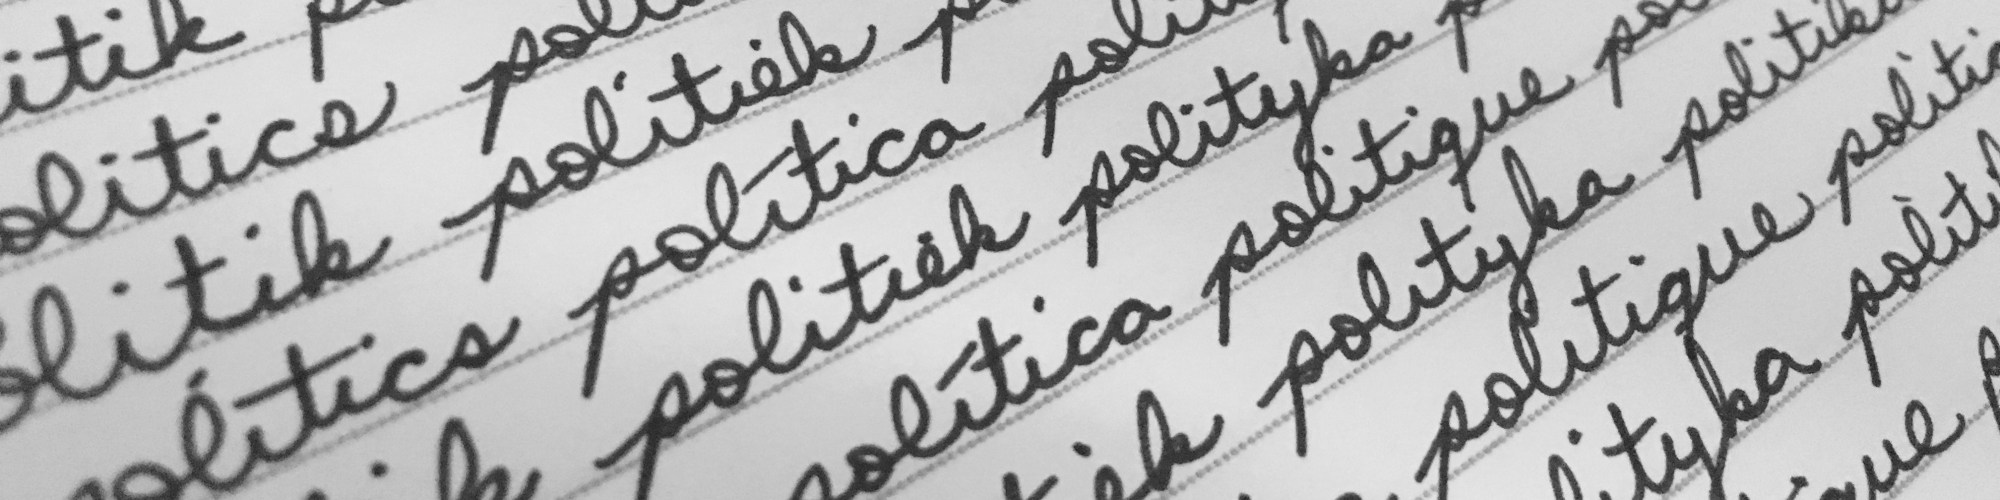 itik p
olitics poli
olitik politiek p
politics política polit
ik politiek polityka p
política politique pol
iek polityka politik
politique politi
lityka polit
ique